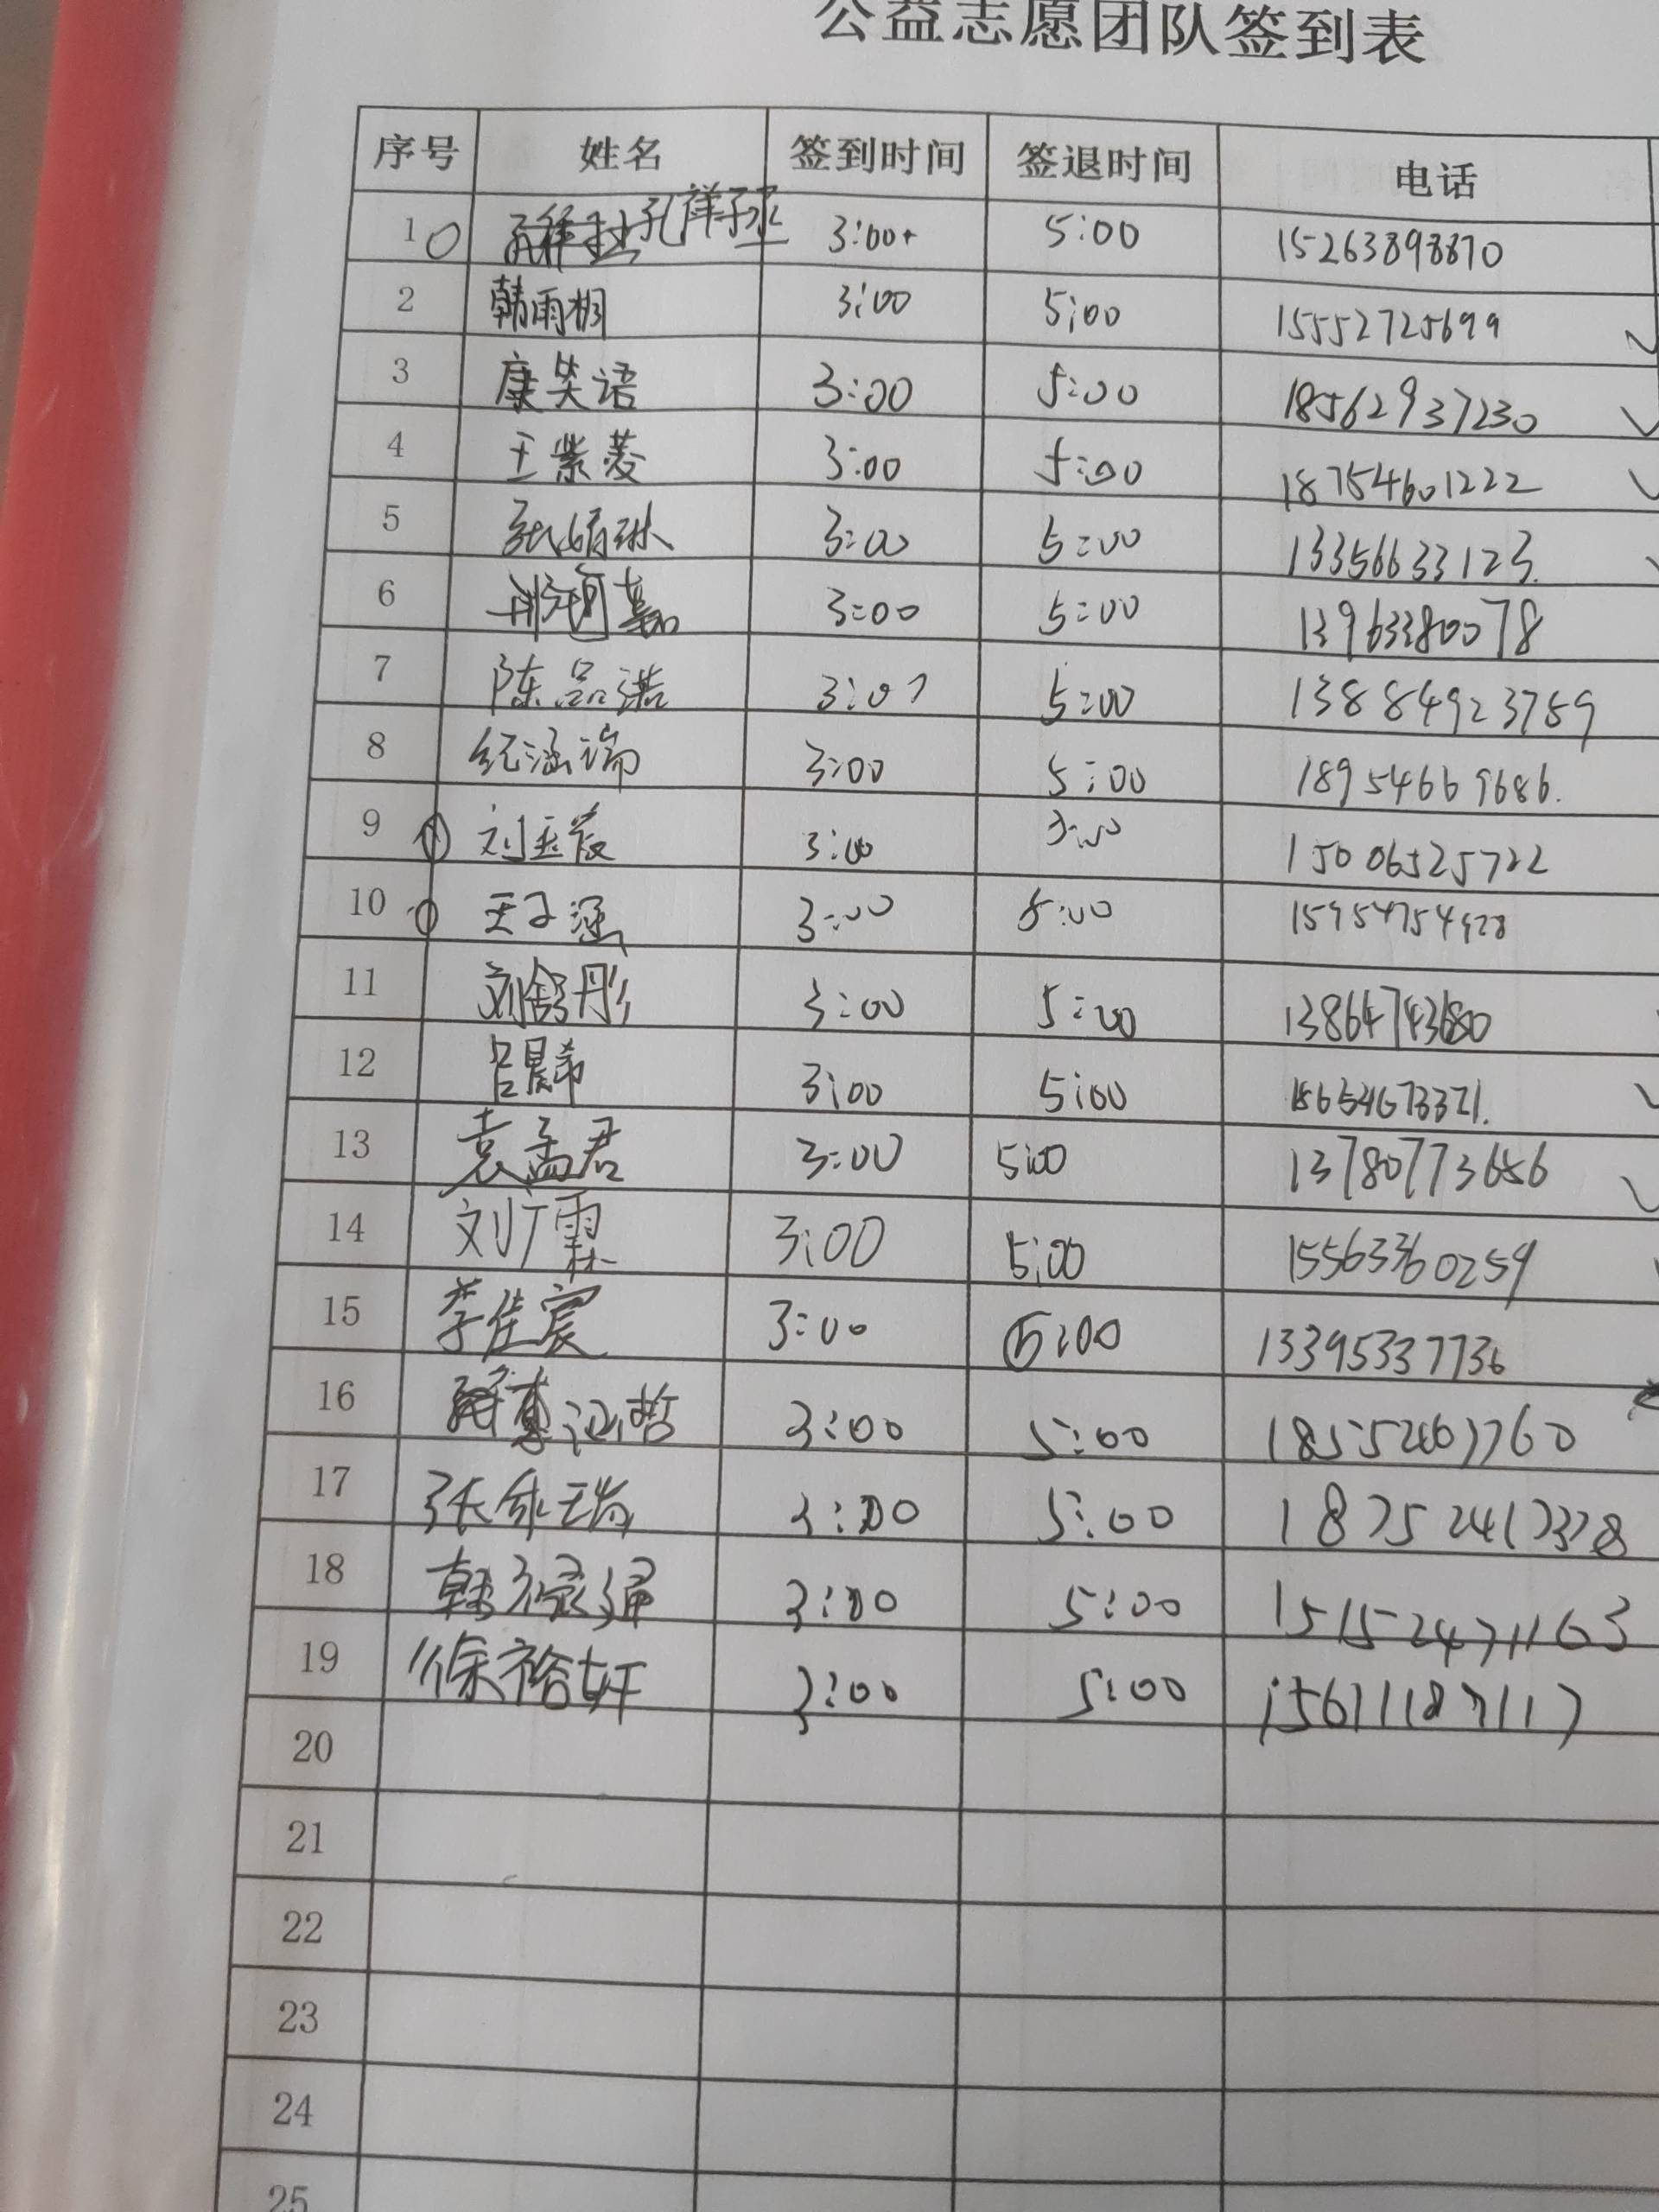 公益志愿团队签到表
序号 姓名 签到时间 签退时间 电话
1 孔祥丞 3:00 5:00 15263898870
2 韩雨桐 3:00 5:00 15552725699
3 康笑语 3:00 5:00 18562937230
4 王紫菱 3:00 5:00 18754601222
5 3:00 5:00 13356633123.
6 3:00 5:00 13963380078
7 陈品诺 3:00 5:00 13884923759
8 纪涵瑞 3:00 5:00 18954669686.
9 3:00 15006525722
10 王子涵 3:00 5:00 15954754928
11 刘舒彤 3:00 5:00 13864743680
12 吕晨希 3:00 5:00
13 袁孟君 3:00 5:00 13780773656
14 刘广霖 3:00 5:00 15563360259
15 李佳宸 3:00 5:00 13395337736
16 3:00 5:00
17 3:00 5:00
18 3:00 5:00
19 徐裕轩 3:00 5:00
20
21
22
23
24
25